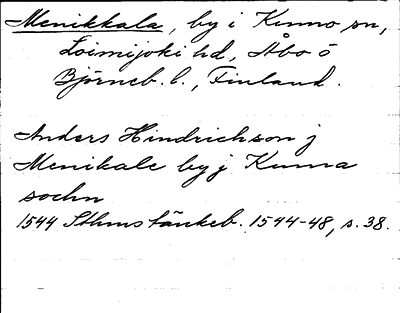 Menikkala, by i Kumo sn,
Loimijoki hd, Åbo ö
Björneb. l., Finland.
Anders Hindrichson j
Menikale by j Kumma
sochn
1544 Sthms tänkeb. 1544-48, s. 38.